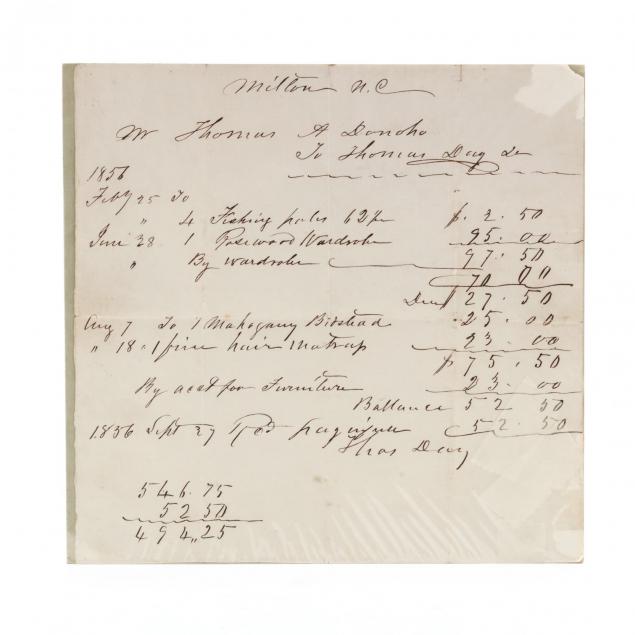 Milton N.C
Mr Thomas A Donoho
To Thomas Day Dr
1856
Feby 25 To
" 4 Fishing poles 62½ $. 2. 50
June 28 1 Rosewood Wardrobe 95. 00
" By wardrobe 97. 50
70 00
Due $27. 50
Aug 7 To 1 Mahogany Bidstead 25. 00
" 18 " 1 fine hair Matrass 23. 00
$75. 50
By acct for Furniture 23. 00
Ballance 52 50
1856 Sept 27 Recd payment 52. 50
Thos Day
546.75
52 50
494,,25